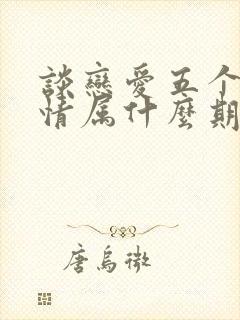 談戀愛五个
情属什麼期
唐烏微